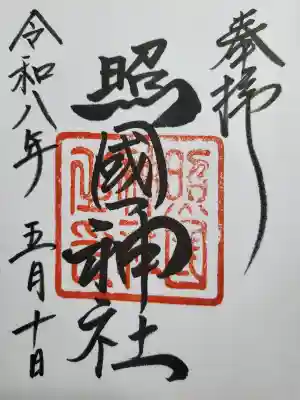 奉拝
照國神社
照国神社
令和八年 五月十日